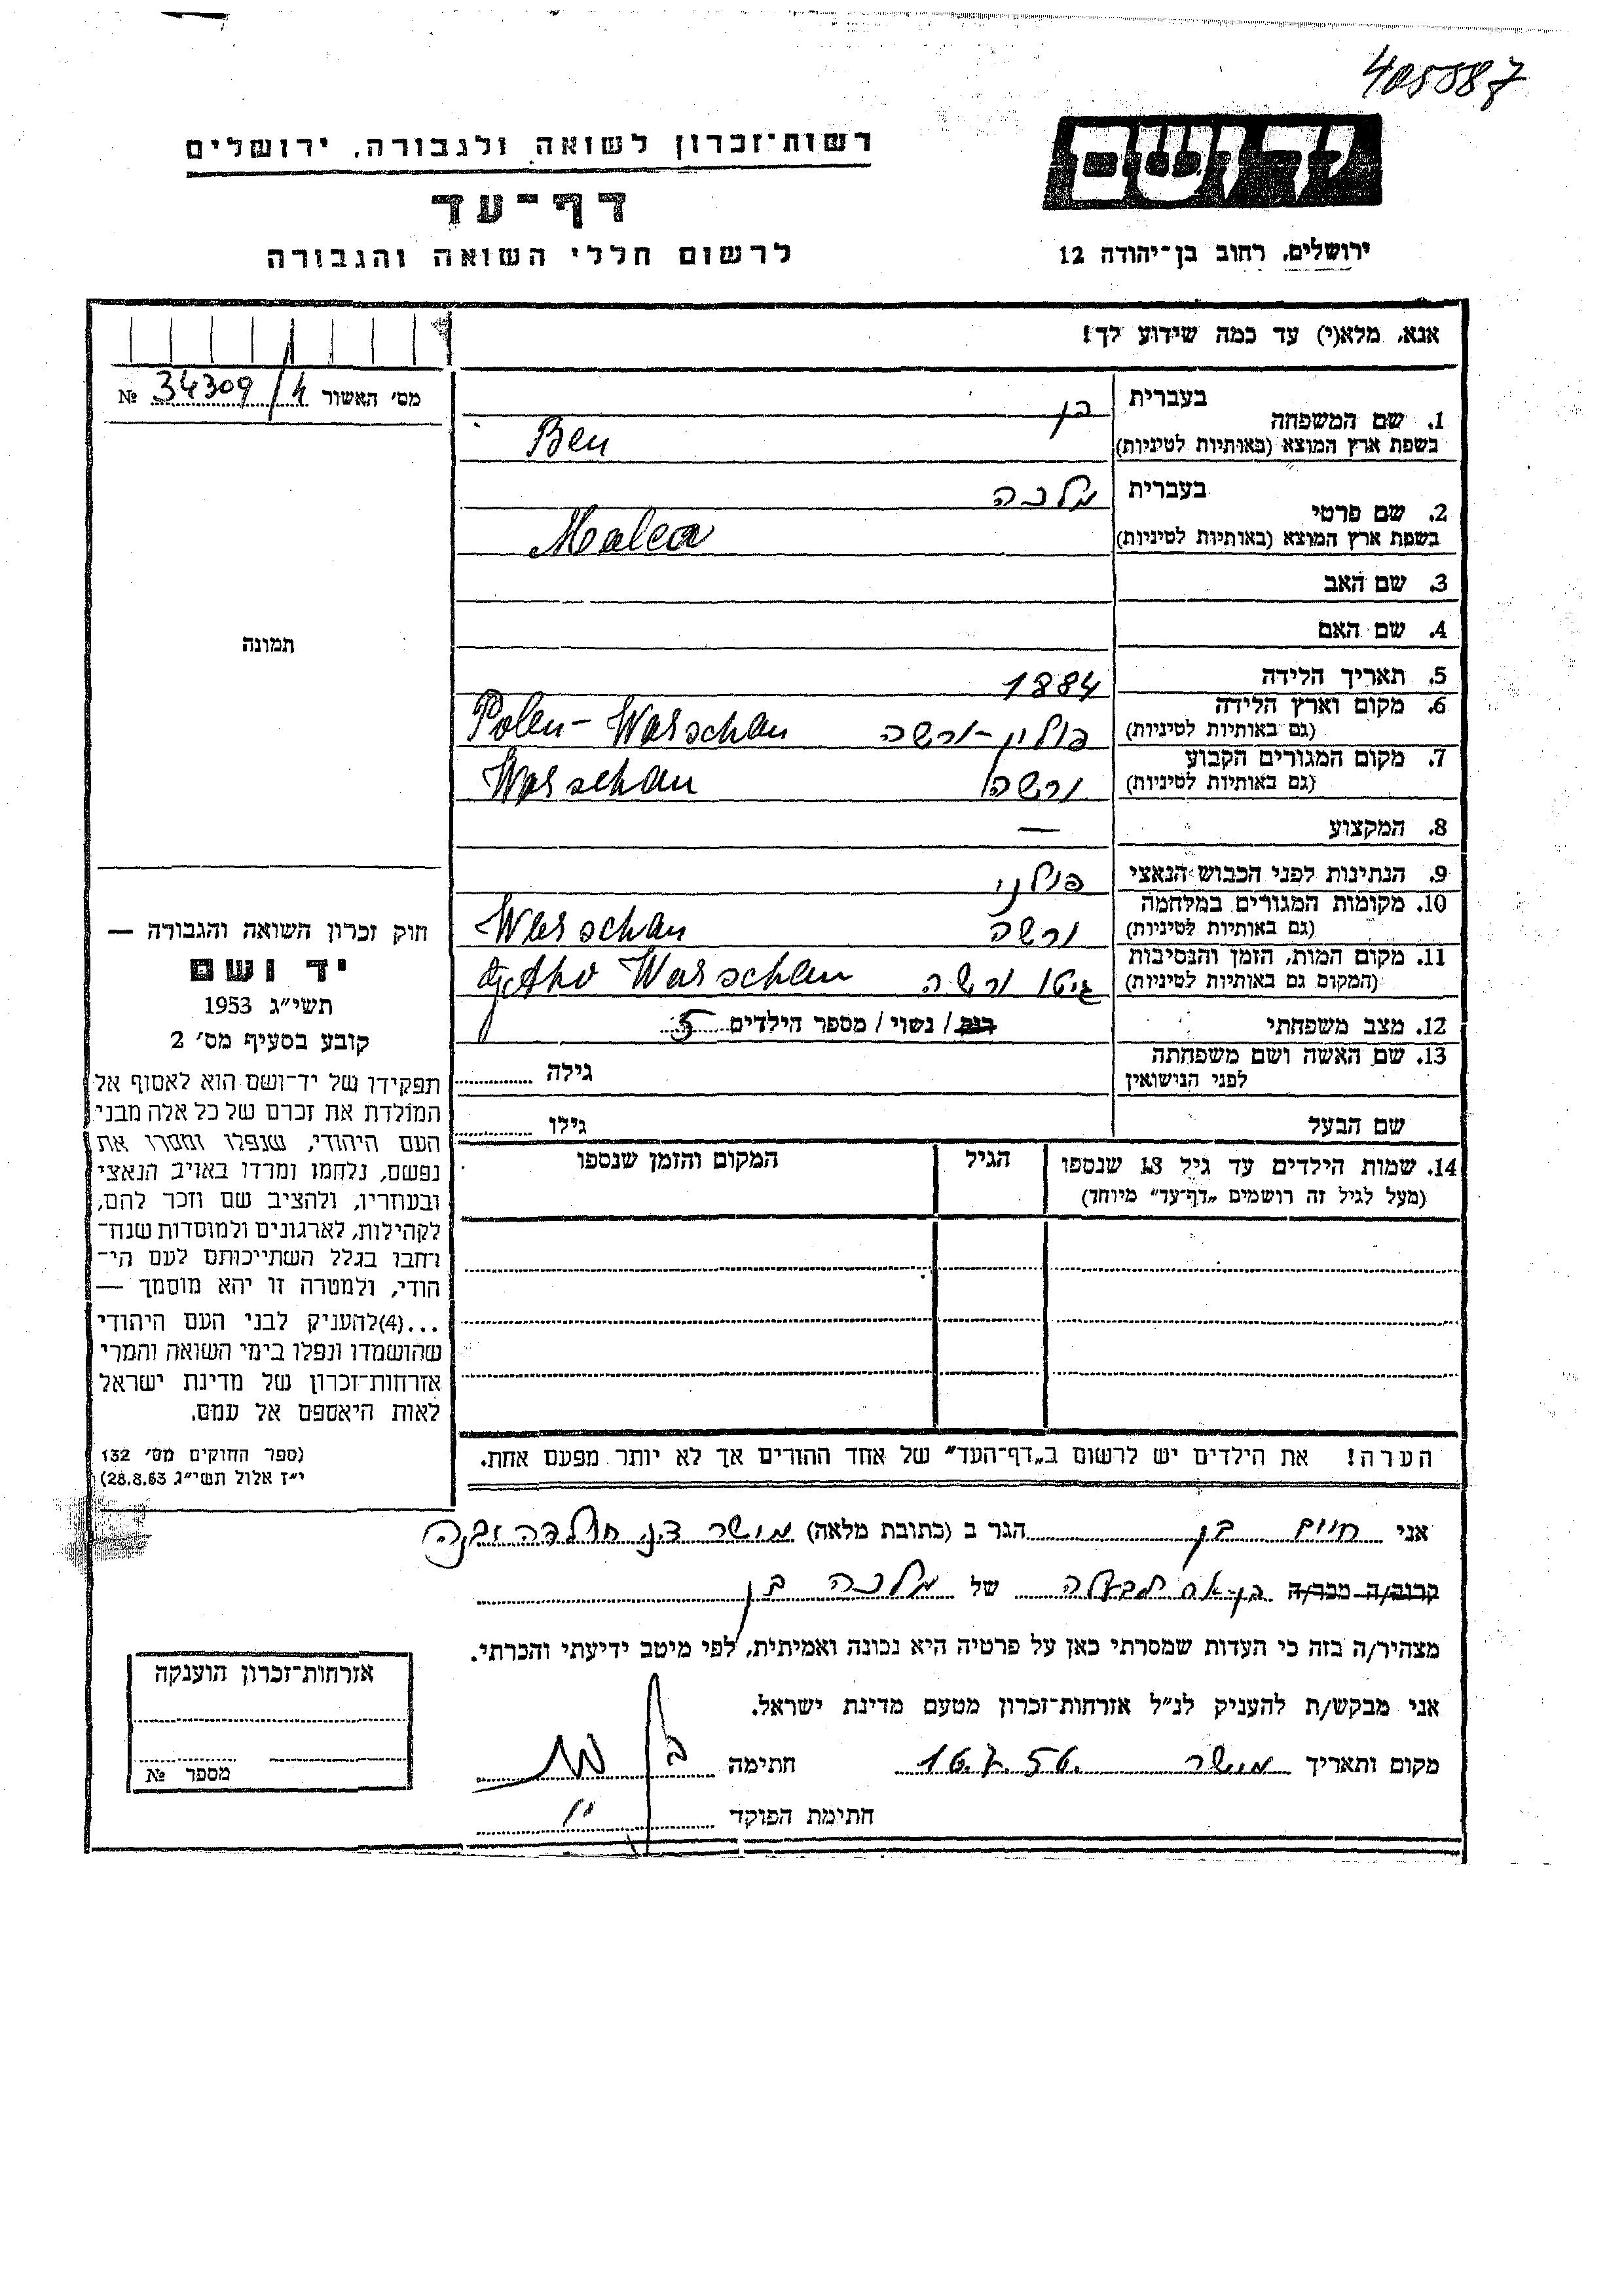 405587
יד ושם
רשות־זכרון לשואה ולגבורה, ירושלים
דף־עד
לרשום חללי השואה והגבורה
ירושלים, רחוב בן־יהודה 12
אנא, מלא(י) עד כמה שידוע לך!
מס׳ האשור 34309/4 №
בעברית בן
1. שם המשפחה
בשפת ארץ המוצא (באותיות לטיניות) Ben
בעברית מלכה
2. שם פרטי
בשפת ארץ המוצא (באותיות לטיניות) Malca
3. שם האב
4. שם האם
תמונה
5. תאריך הלידה 1884
6. מקום וארץ הלידה
(גם באותיות לטיניות) פולין-ורשה Polen-Warschau
7. מקום המגורים הקבוע
(גם באותיות לטיניות) ורשה Warschau
8. המקצוע —
9. הנתינות לפני הכבוש הנאצי פולני
10. מקומות המגורים במלחמה
(גם באותיות לטיניות) ורשה Warschau
11. מקום המות, הזמן והנסיבות
(המקום גם באותיות לטיניות) גיטו ורשה Getho Warschau
12. מצב משפחתי רוק / נשוי / מספר הילדים 5
13. שם האשה ושם משפחתה
לפני הנישואין גילה
שם הבעל גילו
14. שמות הילדים עד גיל 18 שנספו הגיל המקום והזמן שנספו
(מעל לגיל זה רושמים „דף־עד״ מיוחד)
הערה! את הילדים יש לרשום ב„דף־העד״ של אחד ההורים אך לא יותר מפעם אחת.
חוק זכרון השואה והגבורה —
יד ושם
תשי״ג 1953
קובע בסעיף מס׳ 2
תפקידו של יד־ושם הוא לאסוף אל
המולדת את זכרם של כל אלה מבני
העם היהודי, שנפלו ומסרו את
נפשם, נלחמו ומרדו באויב הנאצי
ובעוזריו, ולהציב שם וזכר להם,
לקהילות, לארגונים ולמוסדות שנח־
רחבו בגלל השתייכותם לעם הי־
הודי, ולמטרה זו יהא מוסמך —
...(4)להעניק לבני העם היהודי
שהושמדו ונפלו בימי השואה והמרי
אזרחות־זכרון של מדינת ישראל
לאות היאספם אל עמם.
(ספר החוקים מס׳ 132
י״ז אלול תשי״ג 28.8.53)
אני חיים בן הגר ב (כתובת מלאה) מושב
קרוב/ה מכר/ה בן-אח לבעלה של מלכה בן
מצהיר/ה בזה כי העדות שמסרתי כאן על פרטיה היא נכונה ואמיתית, לפי מיטב ידיעתי והכרתי.
אני מבקש/ת להעניק לנ״ל אזרחות־זכרון מטעם מדינת ישראל.
מקום ותאריך מושב 16.7.56 חתימה
חתימת הפוקד
אזרחות־זכרון הוענקה
מספר №